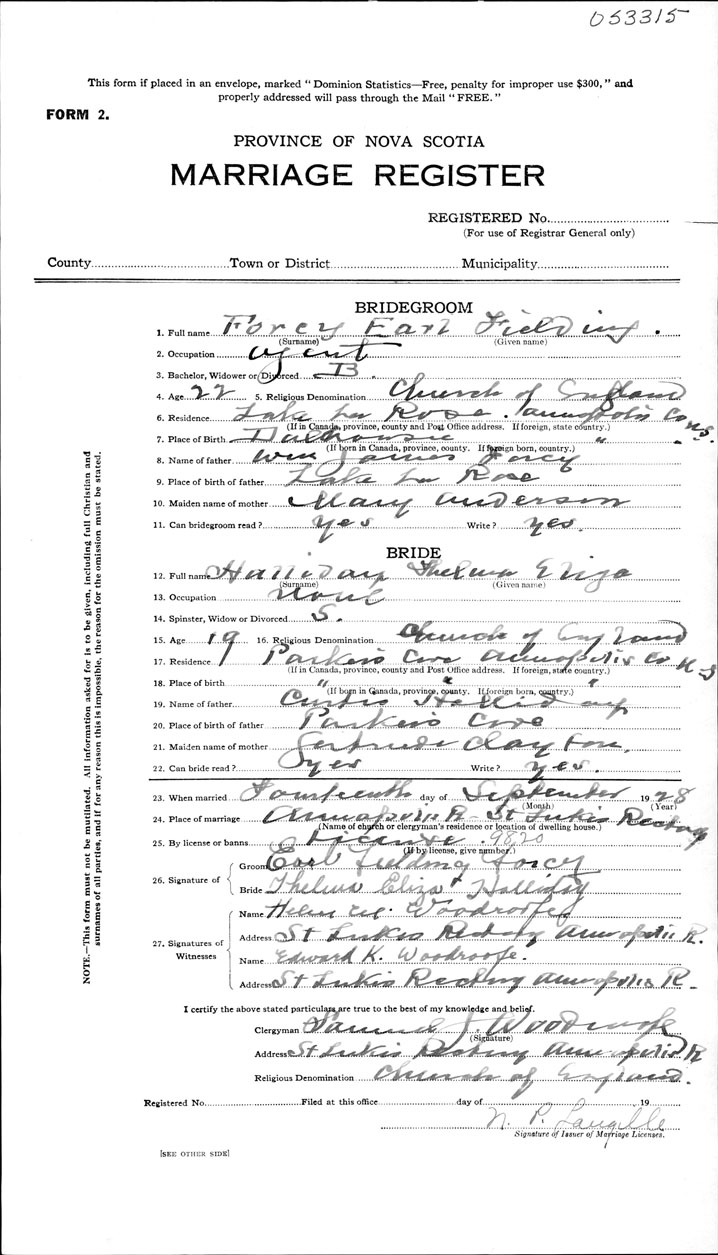 053315
This form if placed in an envelope, marked "Dominion Statistics—Free, penalty for improper use $300," and
properly addressed will pass through the Mail "FREE."
FORM 2.
PROVINCE OF NOVA SCOTIA
MARRIAGE REGISTER
REGISTERED No.
(For use of Registrar General only)
County Town or District Municipality
BRIDEGROOM
1. Full name Forcy Earl Fielding.
(Surname) (Given name)
2. Occupation agent
3. Bachelor, Widower or Divorced B
4. Age 22 5. Religious Denomination Church of England
6. Residence Lake La Rose. Annapolis Co N.S.
(If in Canada, province, county and Post Office address. If foreign, state country.)
7. Place of Birth Dalhousie " "
(If born in Canada, province, county. If foreign born, country.)
8. Name of father Wm James Forcy
9. Place of birth of father Lake La Rose
10. Maiden name of mother Mary Anderson
11. Can bridegroom read? yes Write? yes.
BRIDE
12. Full name Halliday Thelma Eliza
(Surname) (Given name)
13. Occupation None
14. Spinster, Widow or Divorced S.
15. Age 19 16. Religious Denomination Church of England
17. Residence Parker's Cove Annapolis Co N S
(If in Canada, province, county and Post Office address. If foreign, state country.)
18. Place of birth " " "
(If born in Canada, province, county. If foreign born, country.)
19. Name of father Curtis Halliday
20. Place of birth of father Parker's Cove
21. Maiden name of mother Gertrude Clayton.
22. Can bride read? yes Write? yes.
23. When married Fourteenth day of September 1928
(Month) (Year)
24. Place of marriage Annapolis R. St Luke's Rectory
(Name of church or clergyman's residence or location of dwelling house.)
25. By license or banns License. 9820
(If by license, give number.)
26. Signature of
Groom Earl Fielding Forcy
Bride Thelma Eliza Halliday
27. Signatures of Witnesses
Name Helen Woodroofe
Address St Luke's Rectory Annapolis R.
Name Edward K. Woodroofe.
Address St Luke's Rectory Annapolis R.
I certify the above stated particulars are true to the best of my knowledge and belief.
Clergyman Samuel J. Woodroofe
(Signature)
Address St Luke's Rectory Annapolis R
Religious Denomination Church of England.
Registered No. Filed at this office day of 19
N. P. Langille
Signature of Issuer of Marriage Licenses.
[SEE OTHER SIDE]
NOTE.—This form must not be mutilated. All information asked for is to be given, including full Christian and
surnames of all parties, and if for any reason this is impossible, the reason for the omission must be stated.